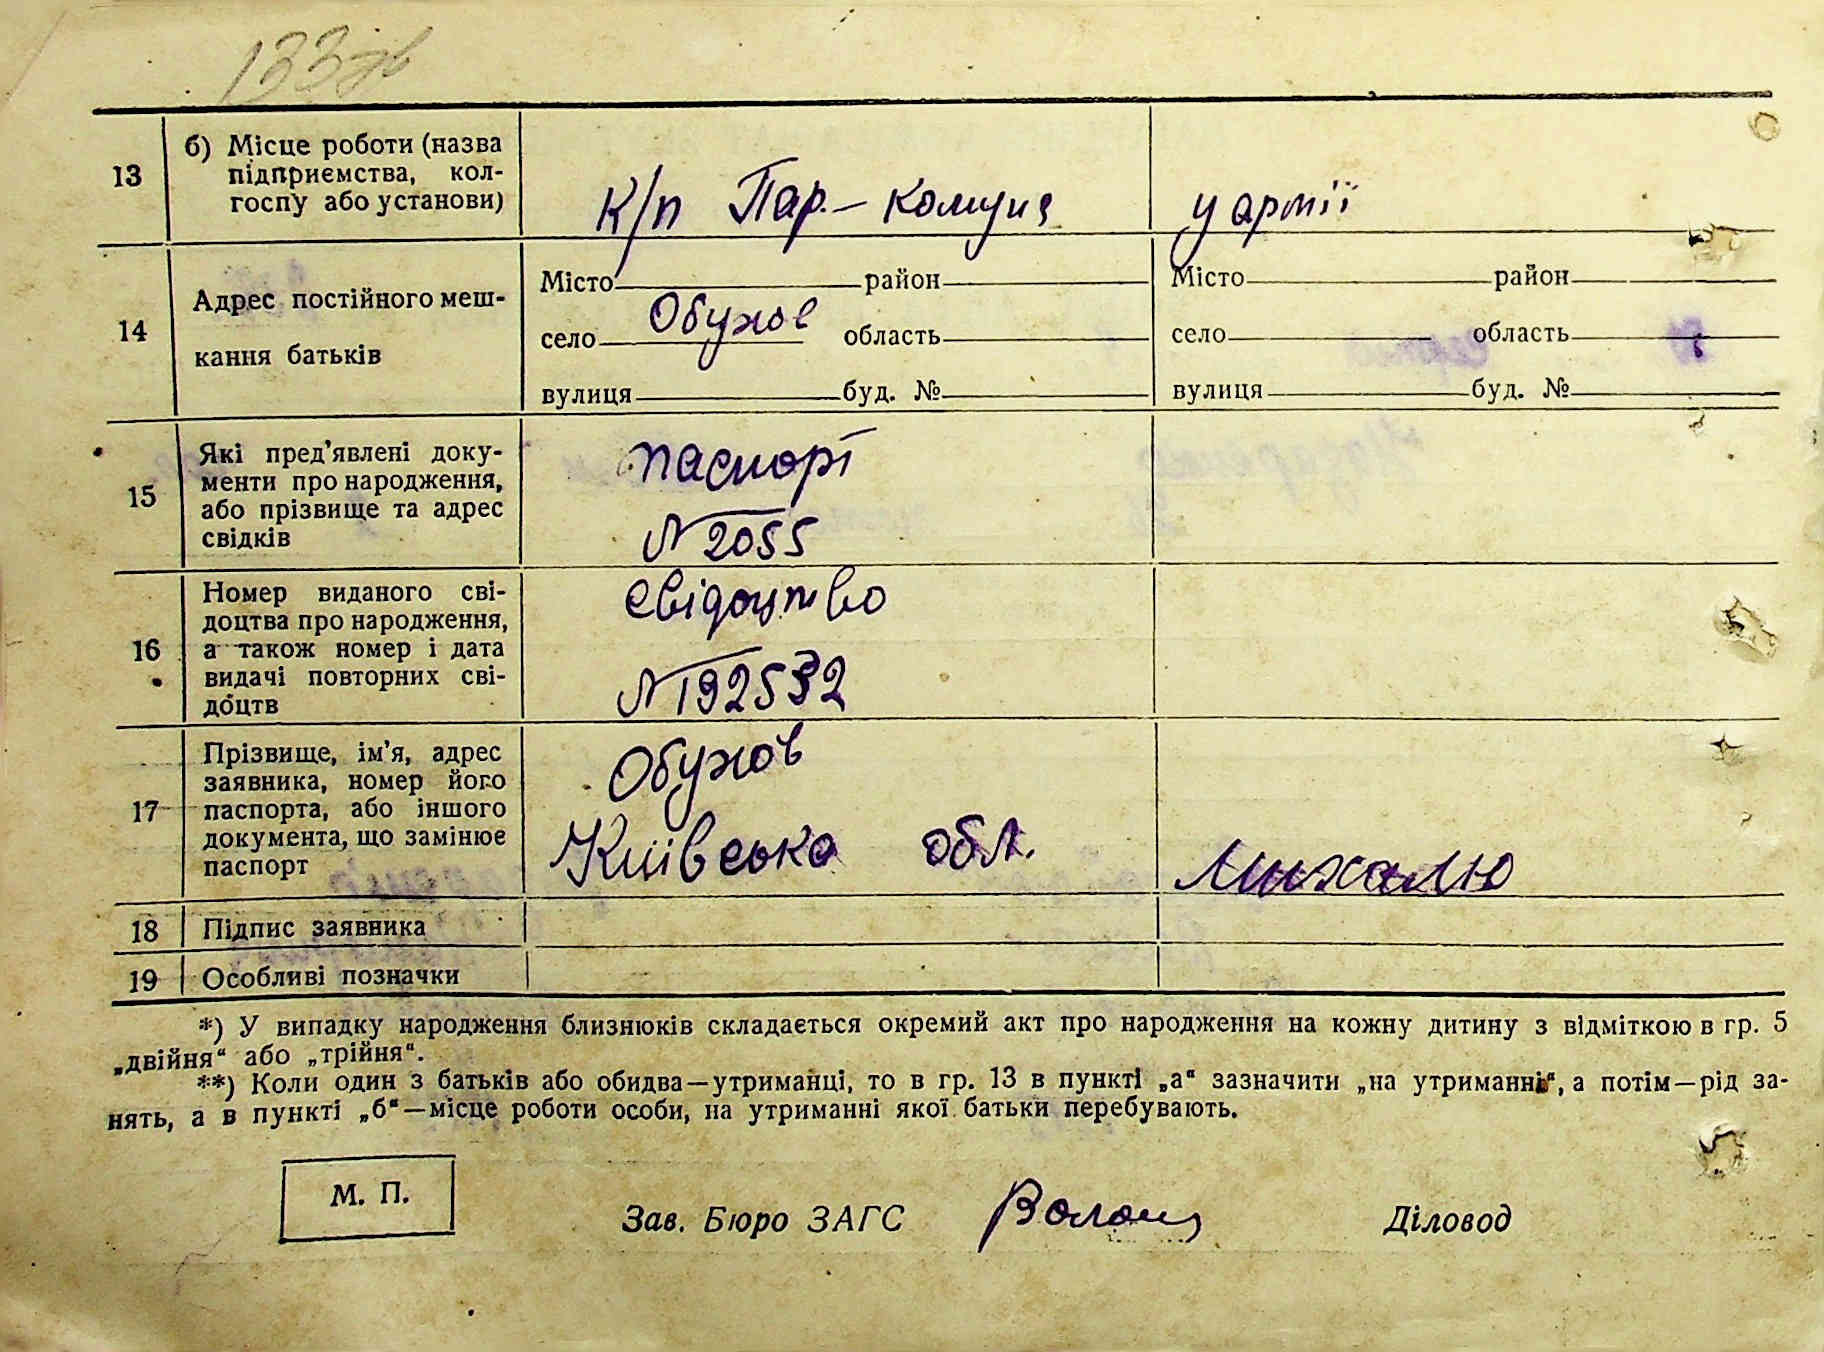 133зв
13 б) Місце роботи (назва підприємства, колгоспу або установи) К/п Пар.-комуна у армії
14 Адрес постійного мешкання батьків
Місто район Місто район
село Обухов область село область
вулиця буд. № вулиця буд. №
15 Які пред’явлені документи про народження, або прізвище та адрес свідків паспорт
№ 2055
16 Номер виданого свідоцтва про народження, а також номер і дата видачі повторних свідоцтв свідоцтво
№ 192532
17 Прізвище, ім’я, адрес заявника, номер його паспорта, або іншого документа, що замінює паспорт Обухов
Київська обл. Михалю
18 Підпис заявника
19 Особливі позначки
*) У випадку народження близнюків складається окремий акт про народження на кожну дитину з відміткою в гр. 5
„двійня“ або „трійня“.
**) Коли один з батьків або обидва—утриманці, то в гр. 13 в пункті „а“ зазначити „на утриманні“, а потім—рід за-
нять, а в пункті „б“—місце роботи особи, на утриманні якої батьки перебувають.
М. П.
Зав. Бюро ЗАГС Діловод